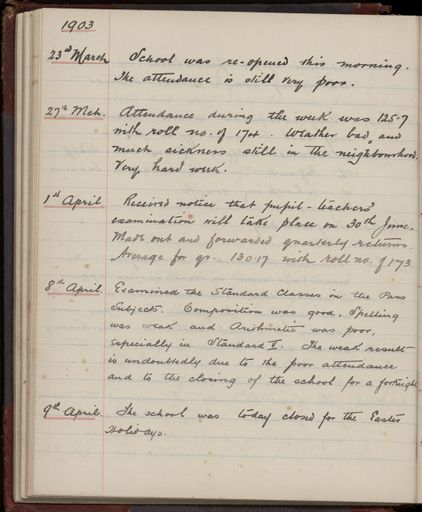 1903
23rd March School was re-opened this morning.
The attendance is still very poor.
27th Mch. Attendance during the week was 125.7
with roll no. of 174. Weather bad, and
much sickness still in the neighbourhood.
Very hard week.
1st April Received notice that pupil-teachers'
examination will take place on 30th June.
Made out and forwarded quarterly returns.
Average for qr. 130.17 with roll no. of 173
8th April. Examined the Standard Classes in the Pass
Subjects. Composition was good, Spelling
was weak and Arithmetic was poor,
especially in Standard V. The weak result
is undoubtedly due to the poor attendance
and to the closing of the school for a fortnight
9th April. The school was today closed for the Easter
Holidays.